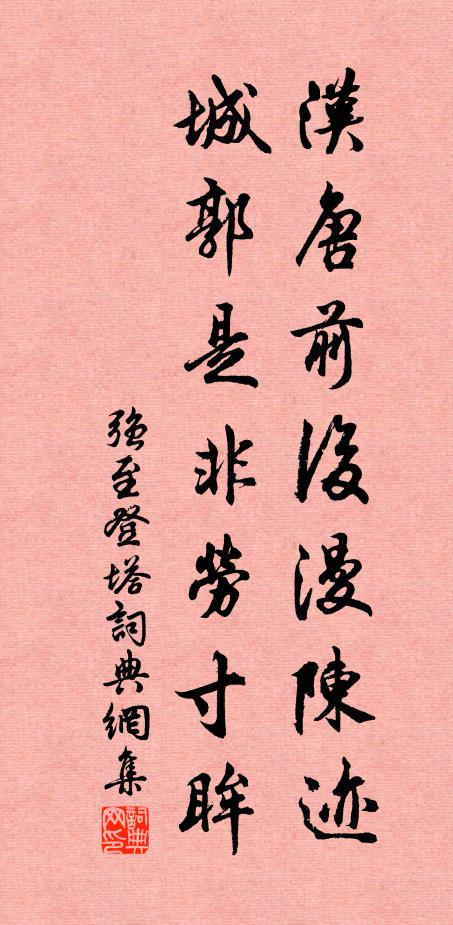 漢唐前後漫陳迹
城郭是非勞寸眸
强至登塔詞典網集
詞典网印